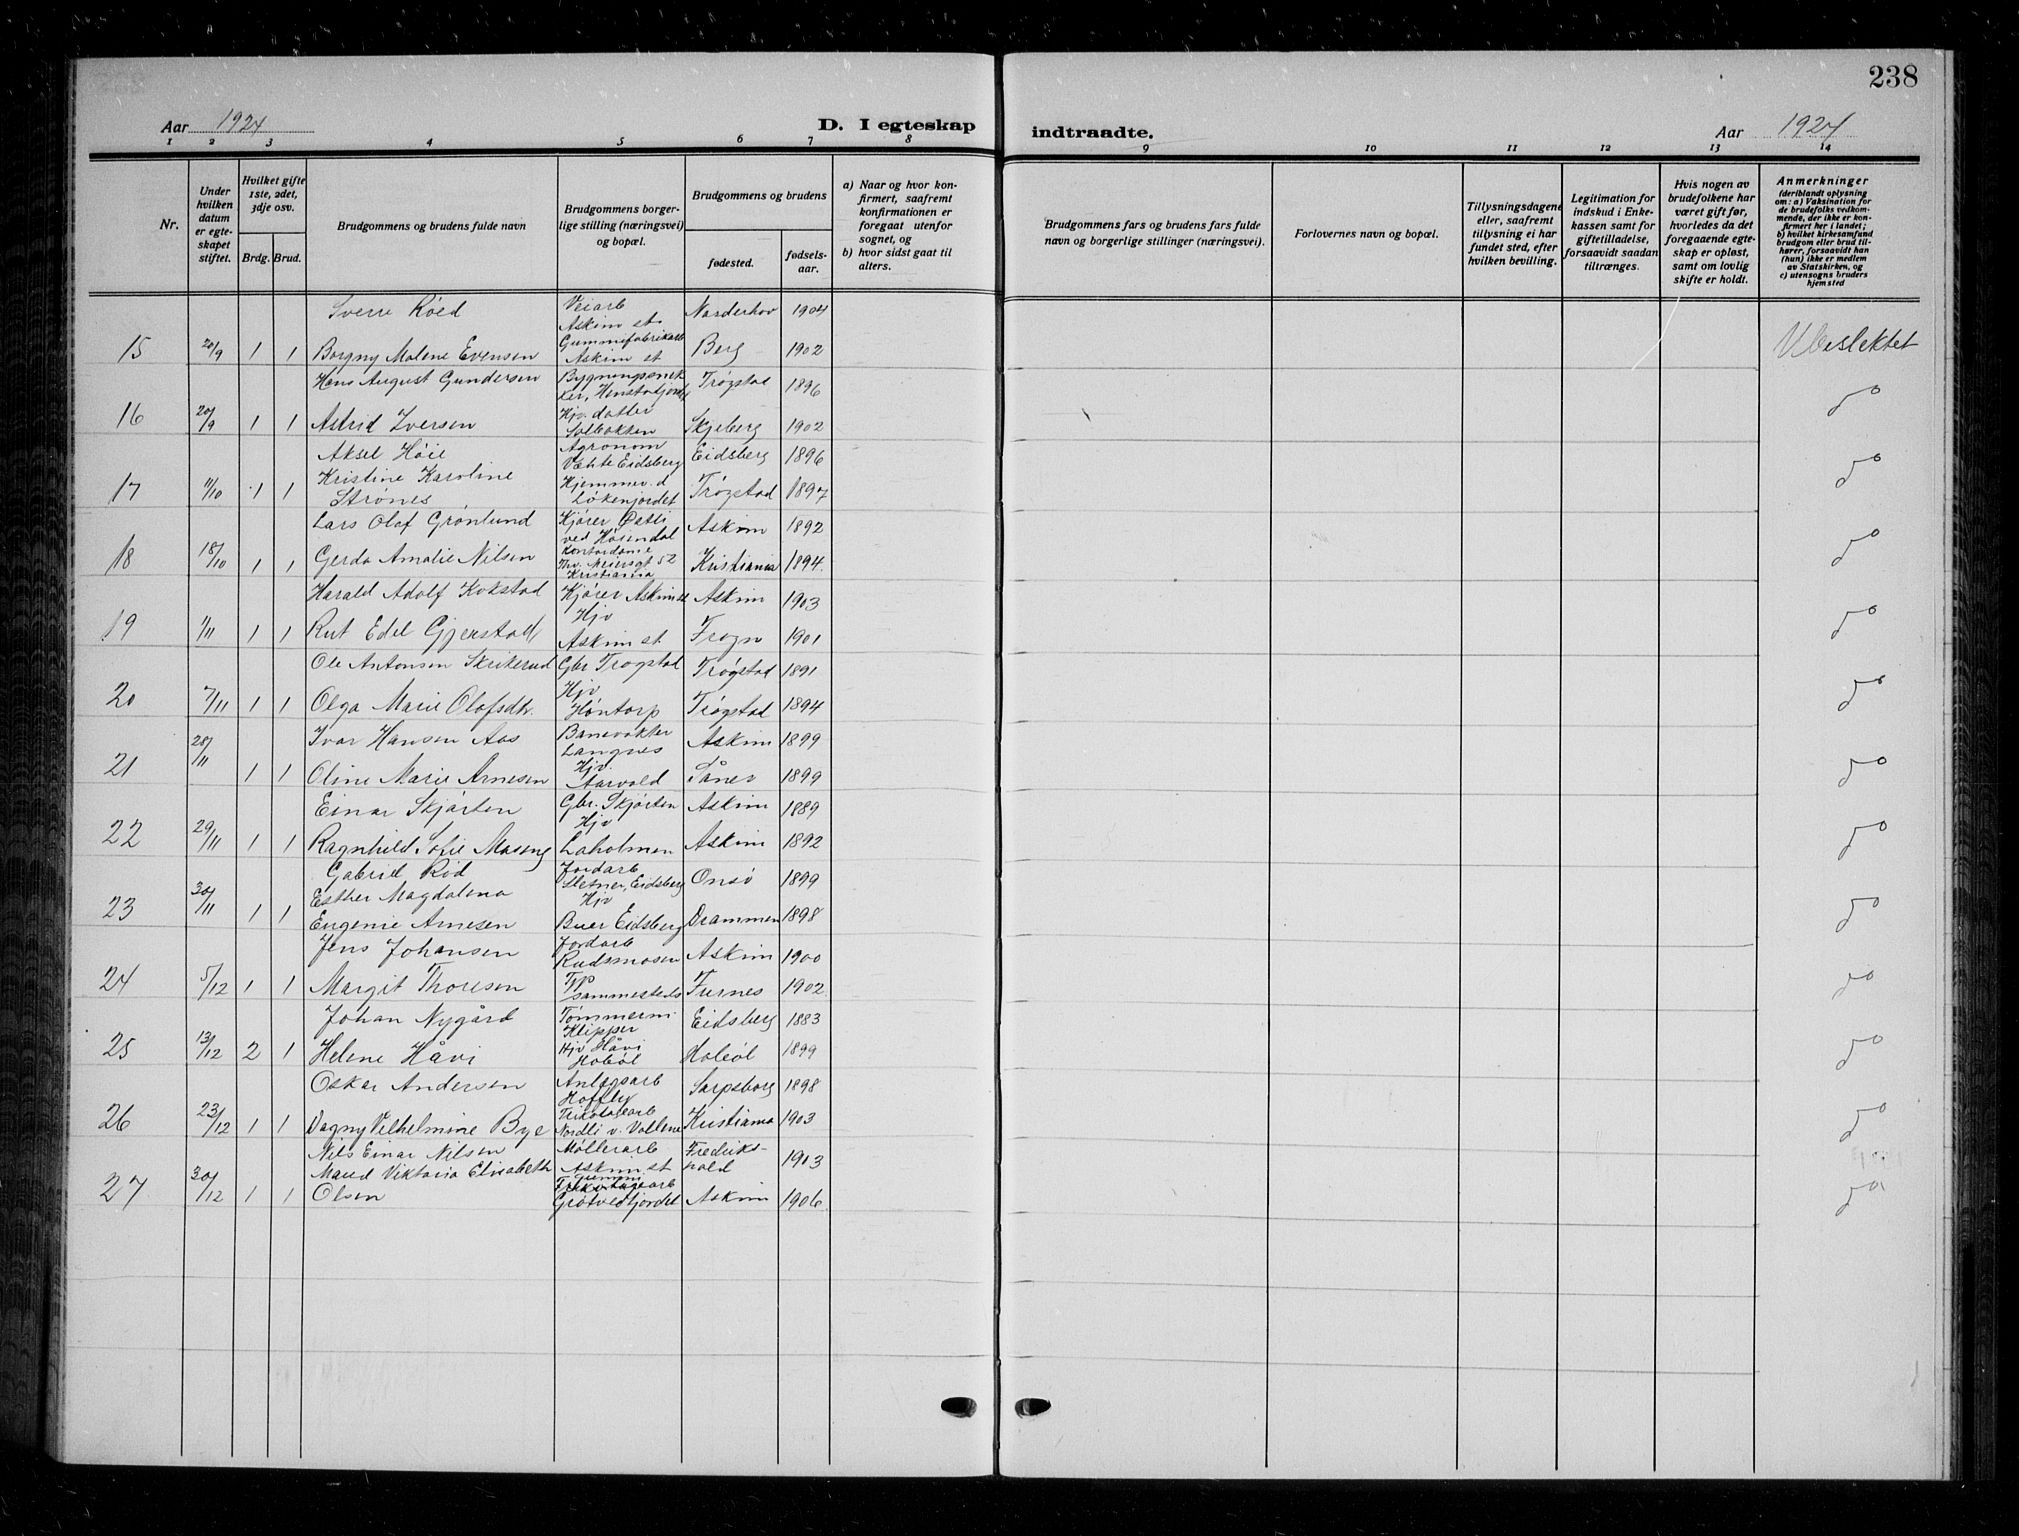 238
Aar 1924
D. I egteskap indtraadte.
Aar 1924
1 2 3 4 5 6 7 8 9 10 11 12 13 14
Nr.
Under hvilken datum er egteskapet stiftet.
Hvilket gifte 1ste, 2det, 3dje osv.
Brdg. Brud.
Brudgommens og brudens fulde navn
Brudgommens borgerlige stilling (næringsvei) og bopæl.
Brudgommens og brudens
fødested. fødselsaar.
a) Naar og hvor konfirmert, saafremt konfirmationen er foregaat utenfor sognet, og
b) hvor sidst gaat til alters.
Brudgommens fars og brudens fars fulde navn og borgerlige stillinger (næringsvei).
Forlovernes navn og bopæl.
Tillysningsdagene eller, saafremt tillysning ei har fundet sted, efter hvilken bevilling.
Legitimation for indskud i Enkekassen samt for giftetilladelse, forsaavidt saadan tiltrænges.
Hvis nogen av brudefolkene har været gift før, hvorledes da det foregaaende egteskap er opløst, samt om lovlig skifte er holdt.
Anmerkninger
(deriblandt oplysning om: a) Vaksination for de brudefolks vedkommende, der ikke er konfirmert her i landet;
b) hvilket kirkesamfund brudgom eller brud tilhører, forsaavidt han (hun) ikke er medlem av Statskirken, og
c) utensogns bruders hjemsted
Sverre Røed Veiarb Askim st. Norderhov 1904
15 20/9 1 1 Borgny Malene Evensen Gummifabrikarb Askim st Berg 1902 Ubeslektet
Hans August Gundersen Bygningssnekker, Henstadjordet Trøgstad 1896
16 20/9 1 1 Astrid Iversen Hjv. datter Solbakken Skjeberg 1902 do
Aksel Høie Agronom Vahte Eidsberg Eidsberg 1896
17 11/10 1 1 Kristine Karoline Strønes Hjemmev. d Løkenjordet Trøgstad 1897 do
Lars Olaf Grønlund Kjører Østli ved Haaendal Askim 1892
18 18/10 1 1 Gerda Amalie Nilsen Kontordame Thv. Meiersgt 52 Kristiania Kristiania 1894. do
Harald Adolf Kokstad Kjører Askim st Askim 1903
19 1/11 1 1 Rut Edel Gjerstad Hjv Askim st Frogn 1901 do
Ole Antonsen Skrikerud Gbr Trøgstad Trøgstad 1891
20 7/11 1 1 Olga Marie Olafsdtr. Hjv Høntorp Trøgstad 1894 do
Ivar Hansen Aas Banevokter Langnes Askim 1899
21 28/11 1 1 Oline Marie Arnesen Hjv. Aarvold Såner 1899 do
Einar Skjørten Gbr. Skjørten Askim 1889
22 29/11 1 1 Ragnhild Sofie Moseng Hjv Laholmen Askim 1892 do
Gabriel Rød Jordarb Sletner, Eidsberg Onsø 1899
23 30/11 1 1 Esther Magdalena Eugenie Arnesen Hjv Buer Eidsberg Drammen 1898 do
Jens Johansen Jordarb Rudsmosen Askim 1900
24 5/12 1 1 Margit Thoresen Tjp sammesteds Furnes 1902 do
Johan Nygård Tømmerm Klipper Eidsberg 1883
25 13/12 2 1 Helene Håvi Hjv Håvi Hobøl Hobøl 1899 do
Oskar Andersen Anlegsarb Hoffby Sarpsborg 1898
26 23/12 1 1 Dagny Vilhelmine Bye Trikotagearb Nordli v. Vollene Kristiania 1903 do
Nils Einar Nilsen Møllerarb Askim st Fredrikshald 1903
27 30/12 1 1 Maud Viktoria Elisabeth Olsen Gummi Grøtvedtjordet Askim 1906 do